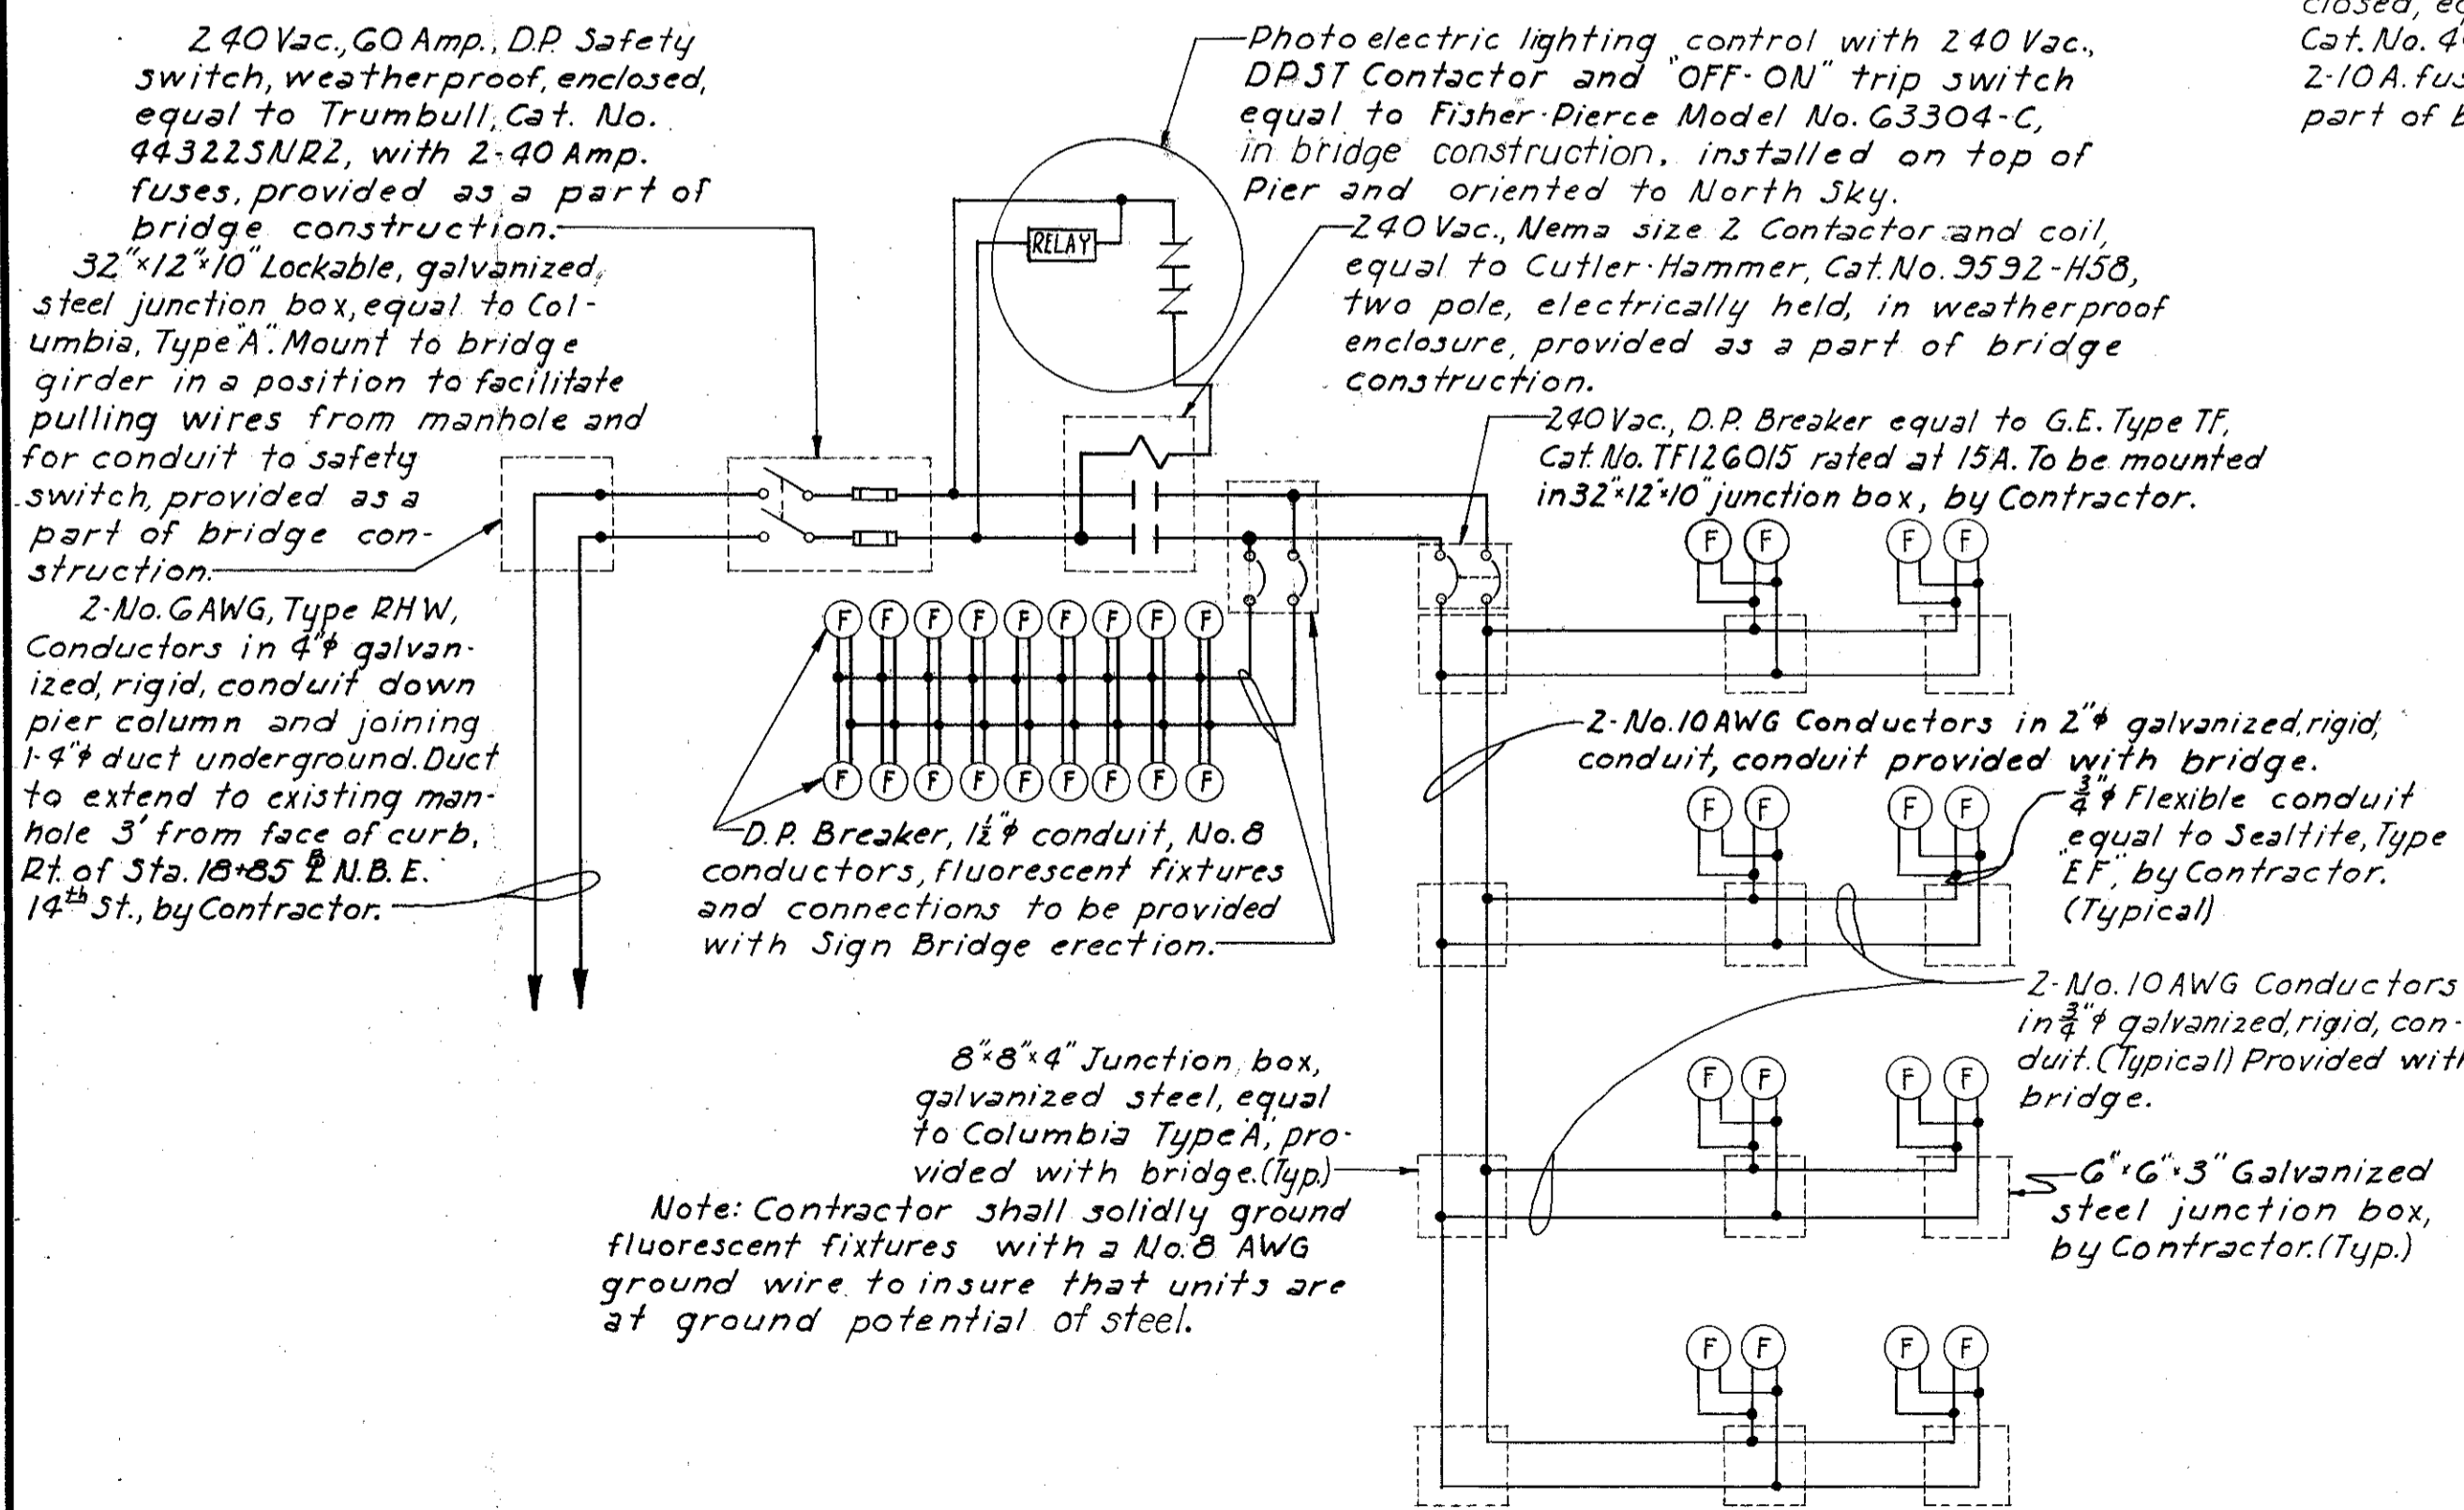 240 Vac., 60 Amp., D.P. Safety
switch, weatherproof, enclosed,
equal to Trumbull, Cat. No.
44322SNR2, with 2-40 Amp.
fuses, provided as a part of
bridge construction.
32"x12"x10" Lockable, galvanized,
steel junction box, equal to Col-
umbia, Type "A". Mount to bridge
girder in a position to facilitate
pulling wires from manhole and
for conduit to safety
switch, provided as a
part of bridge con-
struction.
2-No. 6 AWG, Type RHW,
Conductors in 4"φ galvan-
ized, rigid, conduit down
pier column and joining
1-4"φ duct underground. Duct
to extend to existing man-
hole 3' from face of curb,
Rt. of Sta. 18+85 N.B.E.
14th St., by Contractor.
Photo electric lighting control with 240 Vac.,
DPST Contactor and "OFF-ON" trip switch
equal to Fisher-Pierce Model No. 63304-C,
in bridge construction, installed on top of
Pier and oriented to North Sky.
RELAY
240 Vac., Nema size 2 Contactor and coil,
equal to Cutler-Hammer, Cat. No. 9592-H58,
two pole, electrically held, in weatherproof
enclosure, provided as a part of bridge
construction.
240 Vac., D.P. Breaker equal to G.E. Type TF,
Cat. No. TF126015 rated at 15A. To be mounted
in 32"x12"x10" junction box, by Contractor.
closed, e
Cat. No. 4
2-10 A. fus
part of b
F F F F
F F F F F F F F F
F F F F F F F F F
D.P. Breaker, 1½"φ conduit, No. 8
conductors, fluorescent fixtures
and connections to be provided
with Sign Bridge erection.
2-No. 10 AWG Conductors in 2"φ galvanized, rigid,
conduit, conduit provided with bridge.
F F F F
¾"φ Flexible conduit
equal to Sealtite, Type
"EF", by Contractor.
(Typical)
2-No. 10 AWG Conductors
in ¾"φ galvanized, rigid, con-
duit. (Typical) Provided with
bridge.
8"x8"x4" Junction box,
galvanized steel, equal
to Columbia Type "A", pro-
vided with bridge. (Typ.)
F F F F
6"x6"x3" Galvanized
steel junction box,
by Contractor. (Typ.)
Note: Contractor shall solidly ground
fluorescent fixtures with a No. 8 AWG
ground wire to insure that units are
at ground potential of steel.
F F F F